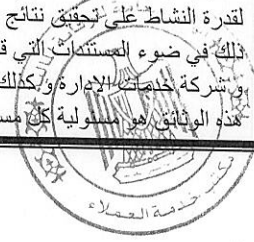 لقدرة النشاط على تحقيق نتائج
ذلك في ضوء المستندات التي
و شركة خدمات الإدارة وكذلك
هذه الوثائق هو مسئولية كل
مكتب خدمة العملاء